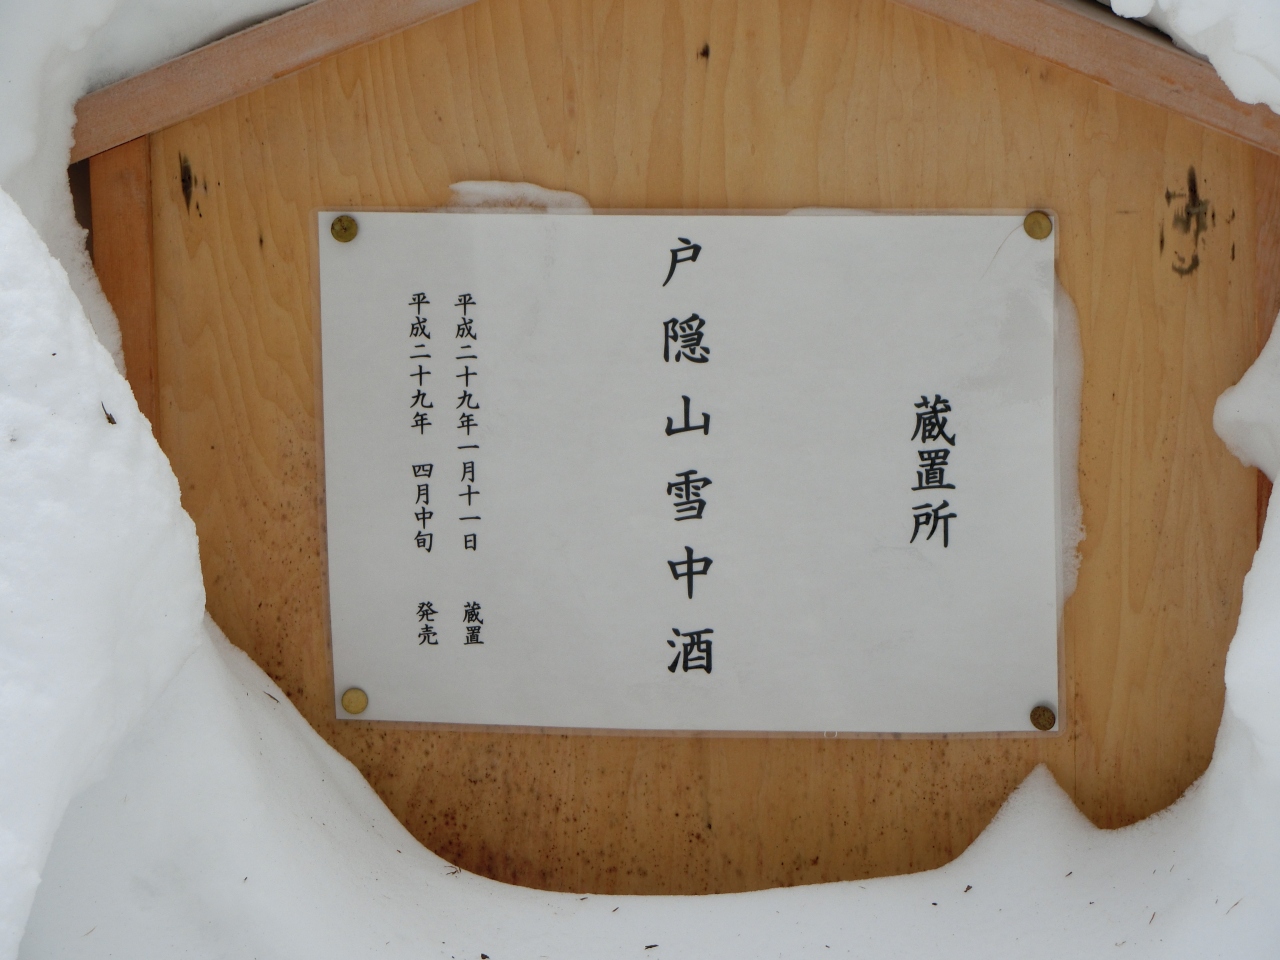 蔵置所
戸隠山雪中酒
平成二十九年一月十一日　蔵置
平成二十九年　四月中旬　発売